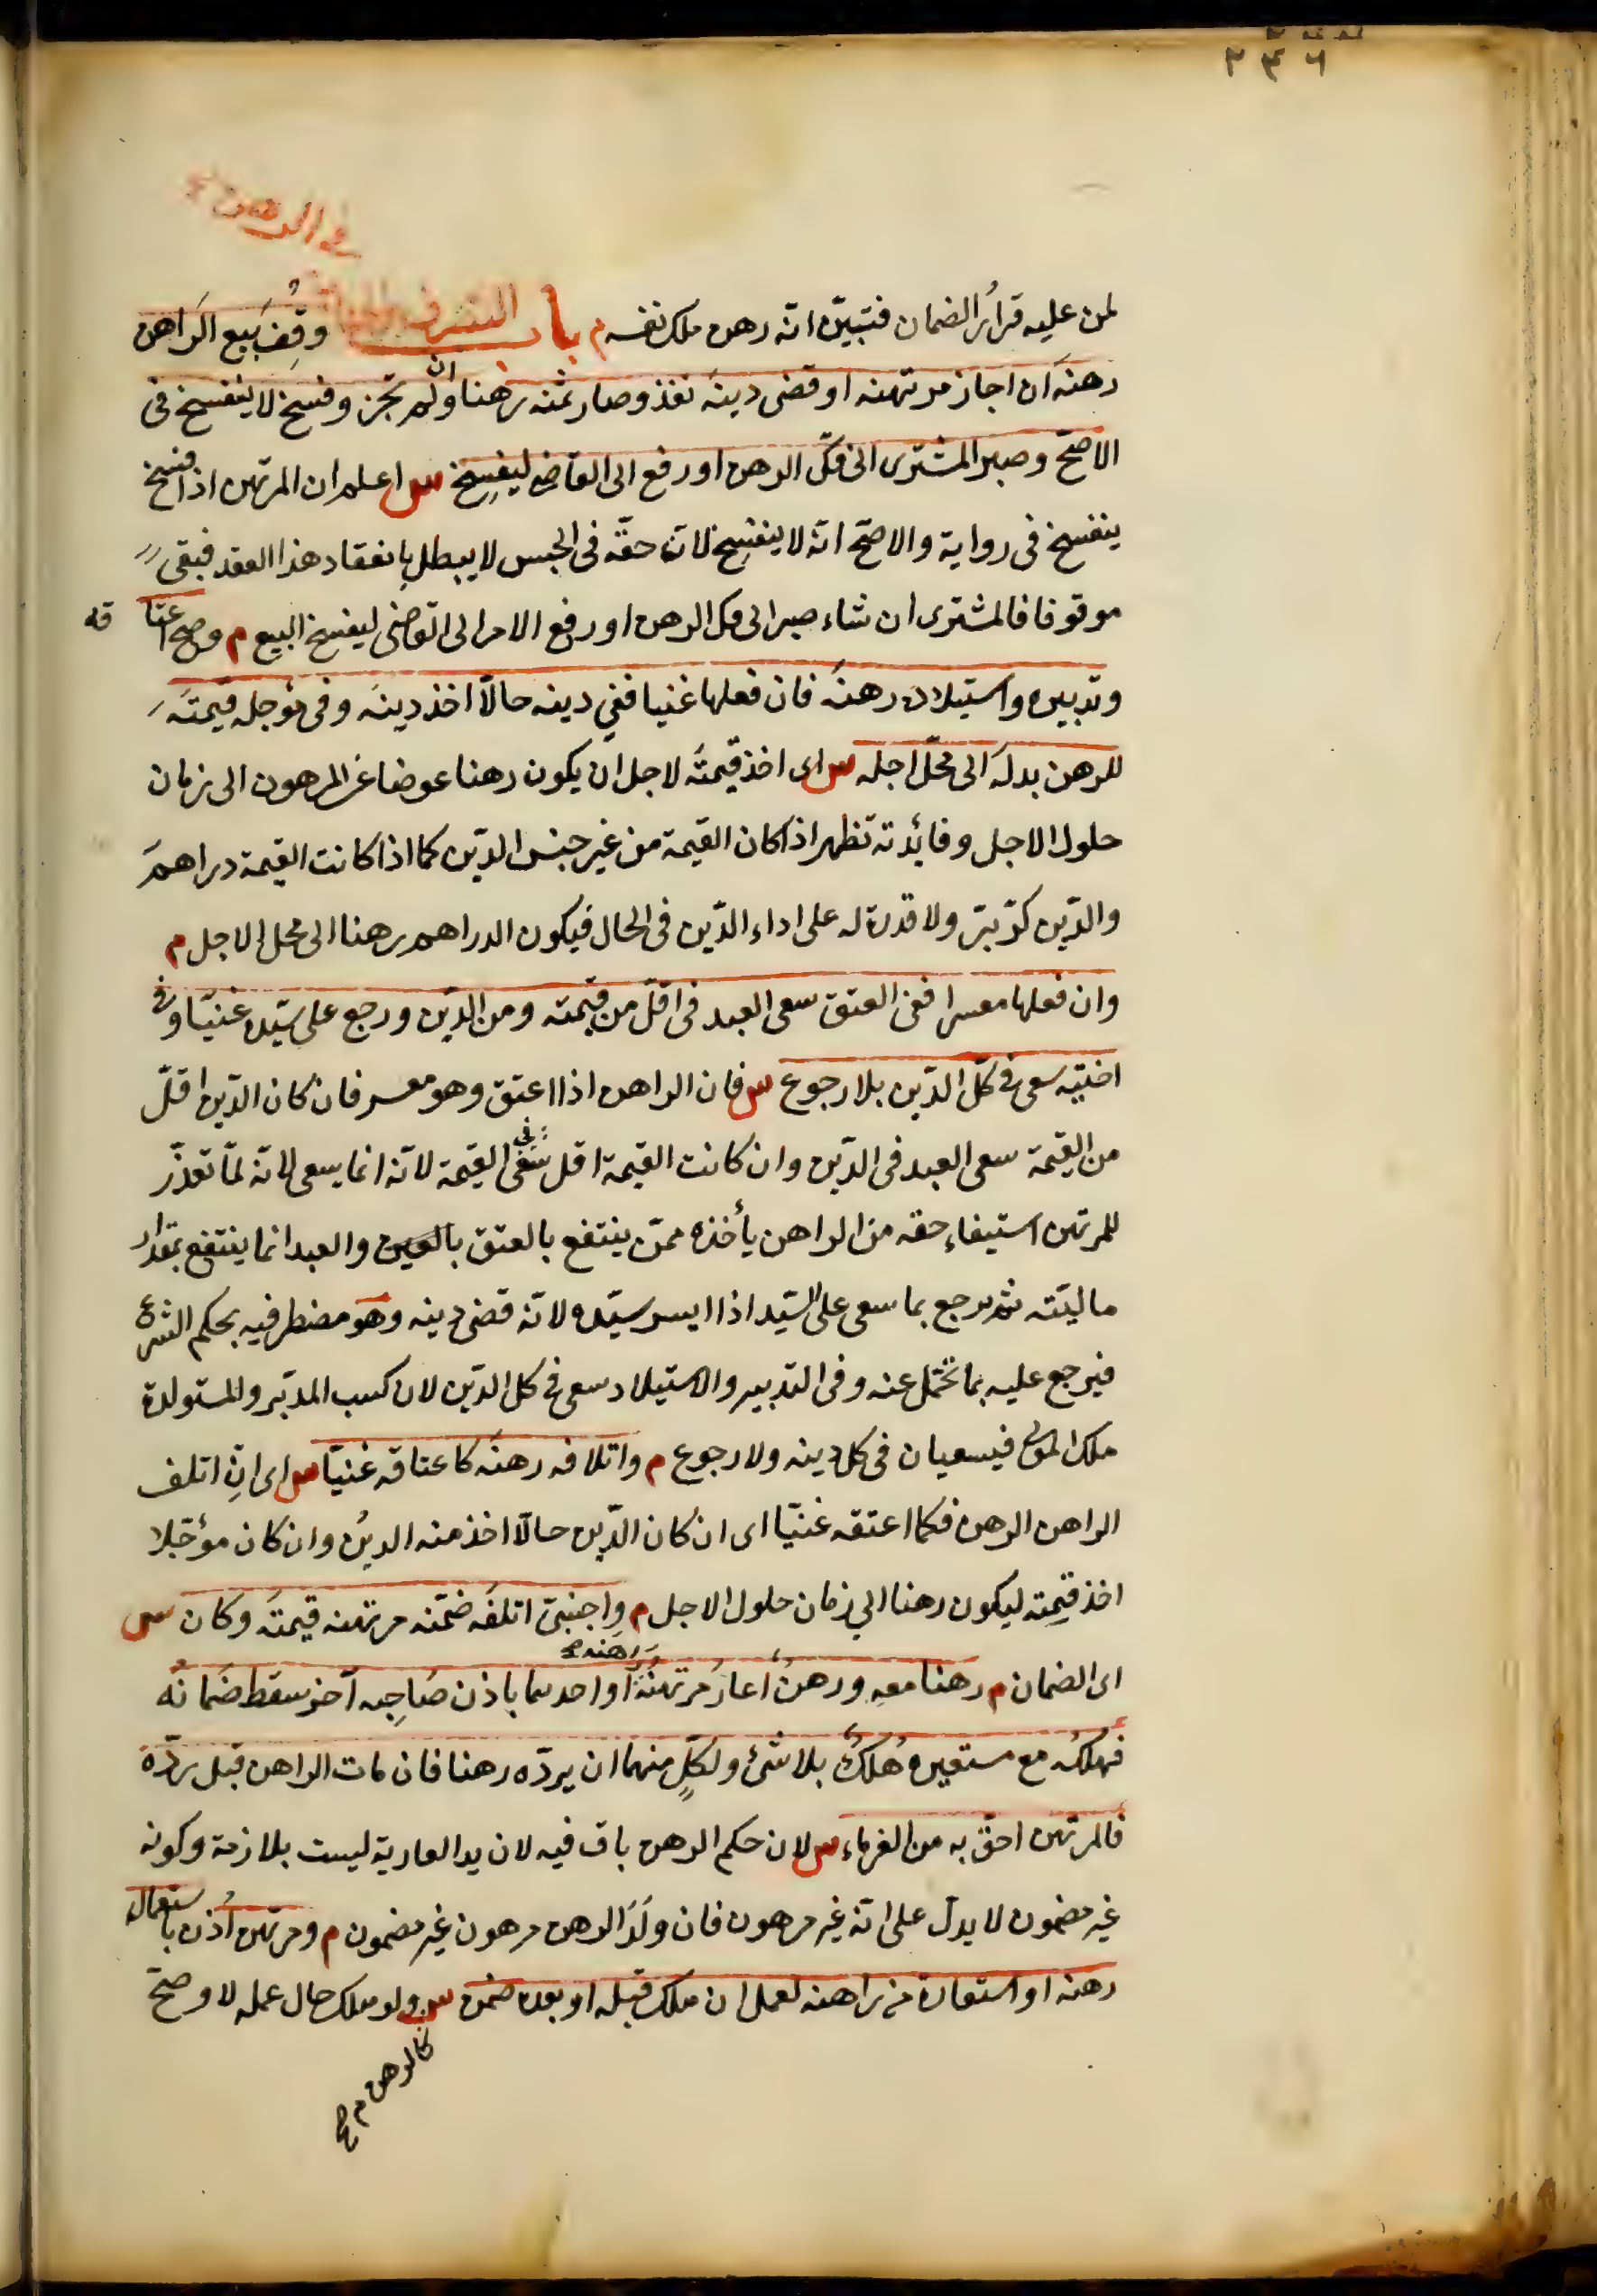 ٢٣٦
فى الرهن
لمن عليه قرار الضمان فتبيّن انّه رهن ملك نفسه م باب التصرف وقف بيع الراهن
رهنه ان اجاز مرتهنه او قضى دينه نفذ وصار ثمنه رهنا وان لم يجز وفسخ لا ينفسخ فى
الاصحّ وصبر المشترى الى فكّ الرهن او رفع الى القاضى ليفسخ س اعلم ان المرتهن اذا فسخ
ينفسخ فى رواية والاصحّ انّه لا ينفسخ لانّ حقّه فى الحبس لا يبطل بانعقاد هذا العقد فبقى
موقوفا فالمشترى ان شاء صبر الى فك الرهن او رفع الامر الى القاضى ليفسخ البيع م وصح اعتاقه
وتدبيره واستيلاده رهنه فان فعلها غنيا ففى دينه حالّا اخذ دينه وفى مؤجله قيمته
للرهن بدله الى محلّ اجله س اى اخذ قيمته لاجل ان يكون رهنا عوضا عن المرهون الى زمان
حلول الاجل وفائدته تظهر اذا كان القيمة من غير جنس الدّين كما اذا كانت القيمة دراهم
والدّين كرّ برّ ولا قدرة له على اداء الدّين فى الحال فيكون الدراهم رهنا الى محل الاجل م
وان فعلها معسرا ففى العتق سعى العبد فى اقلّ من قيمته ومن الدّين ورجع على سيّده غنيّا وفى
اختيه سعى فى كلّ الدّين بلا رجوع س فان الراهن اذا اعتق وهو معسر فان كان الدّين اقلّ
من القيمة سعى العبد فى الدّين وان كانت القيمة اقل سعى فى القيمة لانّه انما يسعى لانّه لمّا تعذّر
للمرتهن استيفاء حقه من الراهن يأخذه ممّن ينتفع بالعتق والعبد انما ينتفع بمقدار
ماليّته ثم يرجع بما سعى على السّيد اذا ايسر سيّده لانّه قضى دينه وهو مضطر فيه بحكم الشرع
فيرجع عليه بما تحمّل عنه وفى التدبير والاستيلاد سعى فى كل الدّين لان كسب المدبّر والمستولدة
ملك المولى فيسعيان فى كل دينه ولا رجوع م واتلافه رهنه كاعتاقه غنيّا س اى ان اتلف
الراهن الرهن فكما اعتقه غنيّا اى ان كان الدّين حالّا اخذ منه الدين وان كان مؤجّلا
اخذ قيمته ليكون رهنا الى زمان حلول الاجل م واجنبىّ اتلفه ضمّنه مرتهنه قيمته وكان س
اى الضمان م رهنا معه ورهن اعاره مرتهنه راهنه او احدهما باذن صاحبه آخر سقط ضمانه
فهلكه مع مستعيره هلك بلا شئ ولكلّ منهما ان يردّه رهنا فان مات الراهن قبل ردّه
فالمرتهن احقّ به من الغرماء س لان حكم الرهن باق فيه لان يد العارية ليست بلازمة وكونه
غير مضمون لا يدلّ على انّه غير مرهون فان ولد الرهن مرهون غير مضمون م ومرتهن اُذن باستعمال
رهنه او استعاره من راهنه لعمل ان هلك قبله او بعده ضمن كالرهن م س ولو هلك حال عمله لا وصحّ